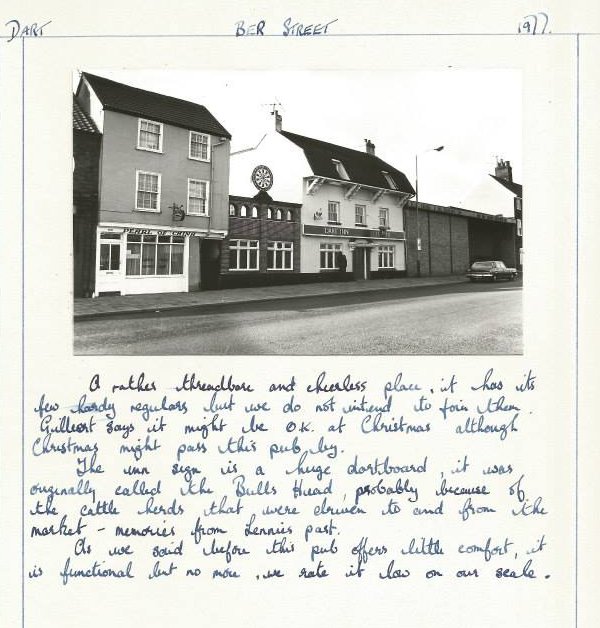 DART BER STREET 1977.
PEARL OF CHINA
DART INN
A rather threadbare and cheerless place, it has its
few hardy regulars but we do not intend to join them.
says it might be O.K. at Christmas although
Christmas might pass this pub by.
The inn sign is a huge dartboard, it was
originally called the Bulls Head, probably because of
the cattle herds that were driven to and from the
market - memories from Lennies past.
As we said before this pub offers little comfort, it
is functional but no more, we rate it low on our scale.